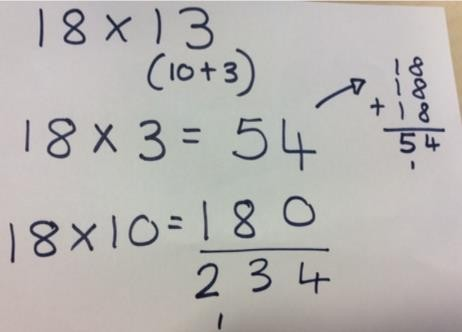 18 × 13
(10+3)
18 × 3 = 54
18
18
+ 18
54
1
18 × 10 = 180
234
1